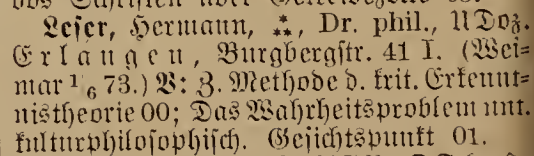 Leser, Hermann, ⁂, Dr. phil., UDoz.
Erlangen, Burgbergstr. 41 I. (Wei-
mar 1/6 73.) V: Z. Methode d. krit. Erkennt-
nistheorie 00; Das Wahrheitsproblem unt.
kulturphilosophisch. Gesichtspunkt 01.